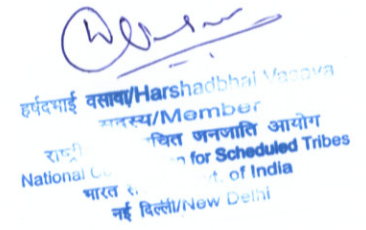 हर्षदभाई वसावा/Harshadbhai Vasava
सदस्य/Member
जनजाति आयोग
National for Scheduled Tribes
भारत of India
नई दिल्ली/New Delhi